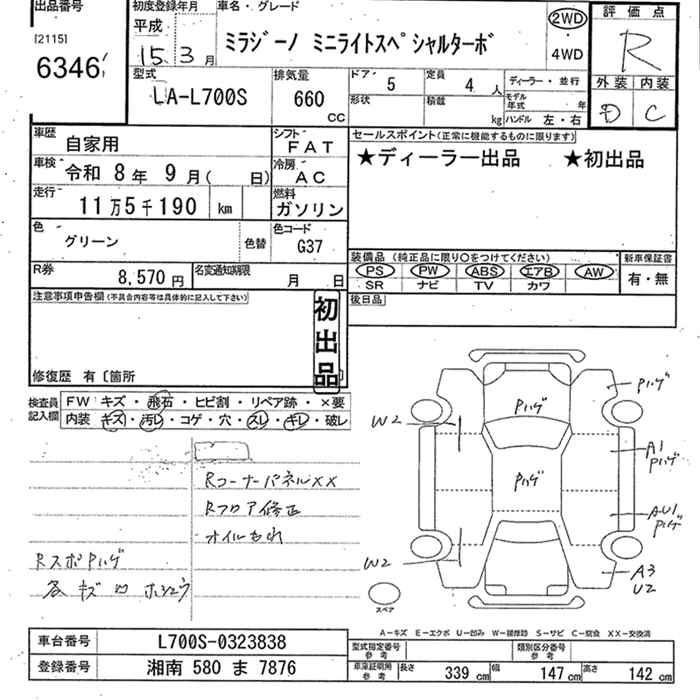 出品番号
[2115]
6346
初度登録年月
平成
15年3月
車名・グレード
ミラジーノ ミニライトスペシャルターボ
2WD
・
4WD
評価点
R
外装 内装
D C
型式
LA-L700S
排気量
660
CC
ドア
5
定員
4人
形状
積載
kg
ディーラー・並行
モデル年式 年
ハンドル 左・右
車歴
自家用
シフト
FAT
車検
令和 8年 9月( 日)
冷房
AC
走行
11万5千190 km
燃料
ガソリン
色
グリーン
色替
色コード
G37
R券
8,570円
名変通知期限
月 日
セールスポイント(正常に機能するものに限ります)
★ディーラー出品 ★初出品
装備品 (純正品に限り○をつけてください)
新車保証書
PS PW ABS エアB AW
SR ナビ TV カワ
有・無
後日品
注意事項申告欄(不具合内容等は具体的に記入して下さい)
初出品
修復歴 有〔箇所
検査員記入欄
FW キズ・飛石・ヒビ割・リペア跡・×要
内装 キズ・汚レ・コゲ・穴・スレ・キレ・破レ
RコーナーパネルXX
Rフロア修正
オイルもれ
RスポPハゲ
各キズ凹ホシュウ
Pハゲ
Pハゲ
W2
A1
Pハゲ
Pハゲ
AU1
Pハゲ
W2
A3
U2
スペア
A―キズ E―エクボ U―凹み W―補修跡 S―サビ C―腐食 XX―交換済
車台番号
L700S-0323838
登録番号
湘南 580 ま 7876
型式指定番号
参考
類別区分番号
参考
車庫証明用
参考
長さ 339 cm
幅 147 cm
高さ 142 cm